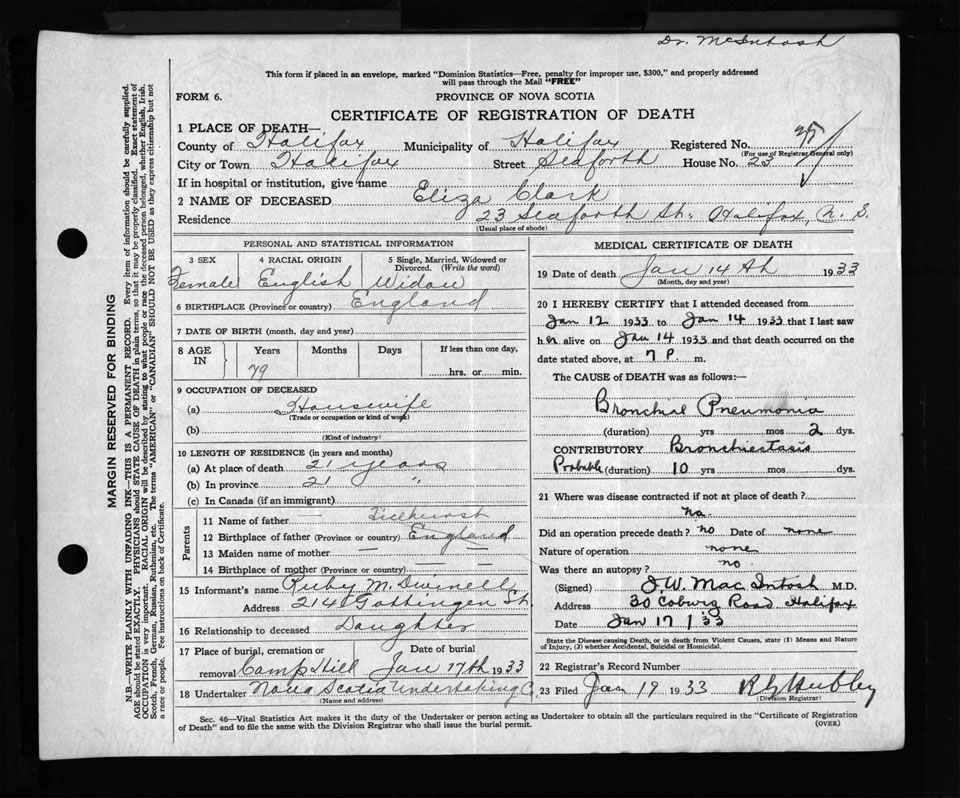 Dr. McIntosh
This form if placed in an envelope, marked "Dominion Statistics—Free, penalty for improper use, $300," and properly addressed
will pass through the Mail "FREE"
FORM 6.
PROVINCE OF NOVA SCOTIA
CERTIFICATE OF REGISTRATION OF DEATH
1 PLACE OF DEATH—
County of Halifax Municipality of Halifax Registered No.
(For use of Registrar General only)
City or Town Halifax Street Seaforth House No. 23
If in hospital or institution, give name
2 NAME OF DECEASED Eliza Clark
Residence 23 Seaforth St., Halifax, N. S.
(Usual place of abode)
MARGIN RESERVED FOR BINDING
N.B.—WRITE PLAINLY WITH UNFADING INK—THIS IS A PERMANENT RECORD. Every item of information should be carefully supplied.
AGE should be stated EXACTLY. PHYSICIANS should STATE CAUSE OF DEATH in plain terms, so that it may be properly classified. Exact statement of
OCCUPATION is very important. RACIAL ORIGIN will be described by stating to what people or race the deceased person belonged, whether English, Irish,
Scotch, French, German, Russian, Ruthenian, etc. The terms "AMERICAN" or "CANADIAN" SHOULD NOT BE USED as they express citizenship but not
a race or people. Fee instructions on back of Certificate.
PERSONAL AND STATISTICAL INFORMATION
3 SEX
4 RACIAL ORIGIN
5 Single, Married, Widowed or
Divorced. (Write the word)
Female English Widow
6 BIRTHPLACE (Province or country) England
7 DATE OF BIRTH (month, day and year)
8 AGE
IN
Years Months Days If less than one day,
79
hrs. or min.
9 OCCUPATION OF DECEASED
(a) Housewife
(Trade or occupation or kind of work)
(b)
(Kind of industry)
10 LENGTH OF RESIDENCE (in years and months)
(a) At place of death 21 years
(b) In province 21 "
(c) In Canada (if an immigrant)
Parents
11 Name of father — Ticehurst
12 Birthplace of father (Province or country) England
13 Maiden name of mother — —
14 Birthplace of mother (Province or country) — —
15 Informant's name Ruby M. Dwinell
Address Gottingen St
16 Relationship to deceased Daughter
17 Place of burial, cremation or
removal Camp Hill
Date of burial
Jan 17th 1933
18 Undertaker Nova Scotia Undertaking Co.
(Name and address)
MEDICAL CERTIFICATE OF DEATH
19 Date of death Jan 14 th 1933
(Month, day and year)
20 I HEREBY CERTIFY that I attended deceased from
Jan 12 1933 to Jan 14 1933 that I last saw
her alive on Jan 14 1933 and that death occurred on the
date stated above, at 7 P. m.
The CAUSE of DEATH was as follows:—
Bronchial Pneumonia
(duration) yrs mos 2 dys.
CONTRIBUTORY Bronchiectasis
Probable (duration) 10 yrs mos dys.
21 Where was disease contracted if not at place of death?
no.
Did an operation precede death? no Date of none
Nature of operation none
Was there an autopsy? no
(Signed) J. W. MacIntosh M.D.
Address 30 Coburg Road Halifax
Date Jan 17 / 33
State the Disease causing Death, or in death from Violent Causes, state (1) Means and Nature
of Injury, (2) whether Accidental, Suicidal or Homicidal.
22 Registrar's Record Number
23 Filed Jan 19 1933
(Division Registrar)
Sec. 46—Vital Statistics Act makes it the duty of the Undertaker or person acting as Undertaker to obtain all the particulars required in the "Certificate of Registration
of Death" and to file the same with the Division Registrar who shall issue the burial permit.
(OVER)